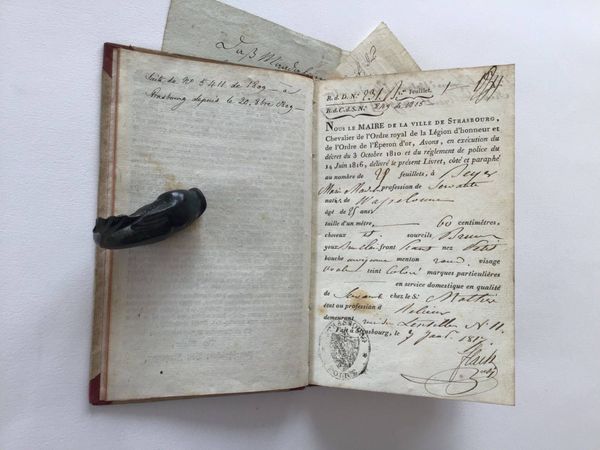 Daß
Suite de Nº 5411 de 1809
Strasbourg depuis le 20. 8bre 1809
R. d. D. N.º feuillet.
R. d. C. d. S. N.º 249 de 1815
NOUS LE MAIRE DE LA VILLE DE STRASBOURG,
Chevalier de l'Ordre royal de la Légion d'honneur et
de l'Ordre de l'Éperon d'or, Avons, en exécution du
décret du 3 Octobre 1810 et du règlement de police du
14 Juin 1816, délivré le présent Livret, côté et paraphé
au nombre de 25 feuillets, à Beyer
Marie profession de Servante
natif de
âgé de 25 ans
taille d'un mètre, 60 centimètres,
cheveux et sourcils Bruns
yeux front haut nez Petit
bouche moyenne menton rond visage
ovale teint Coloré marques particulières
en service domestique en qualité
de Servante chez le S.r Mathis
état ou profession d Relieur
demeurant rue de N. 11.
Fait à Strasbourg, le 7 Janv. 1817
STRASBOURG
POLICE